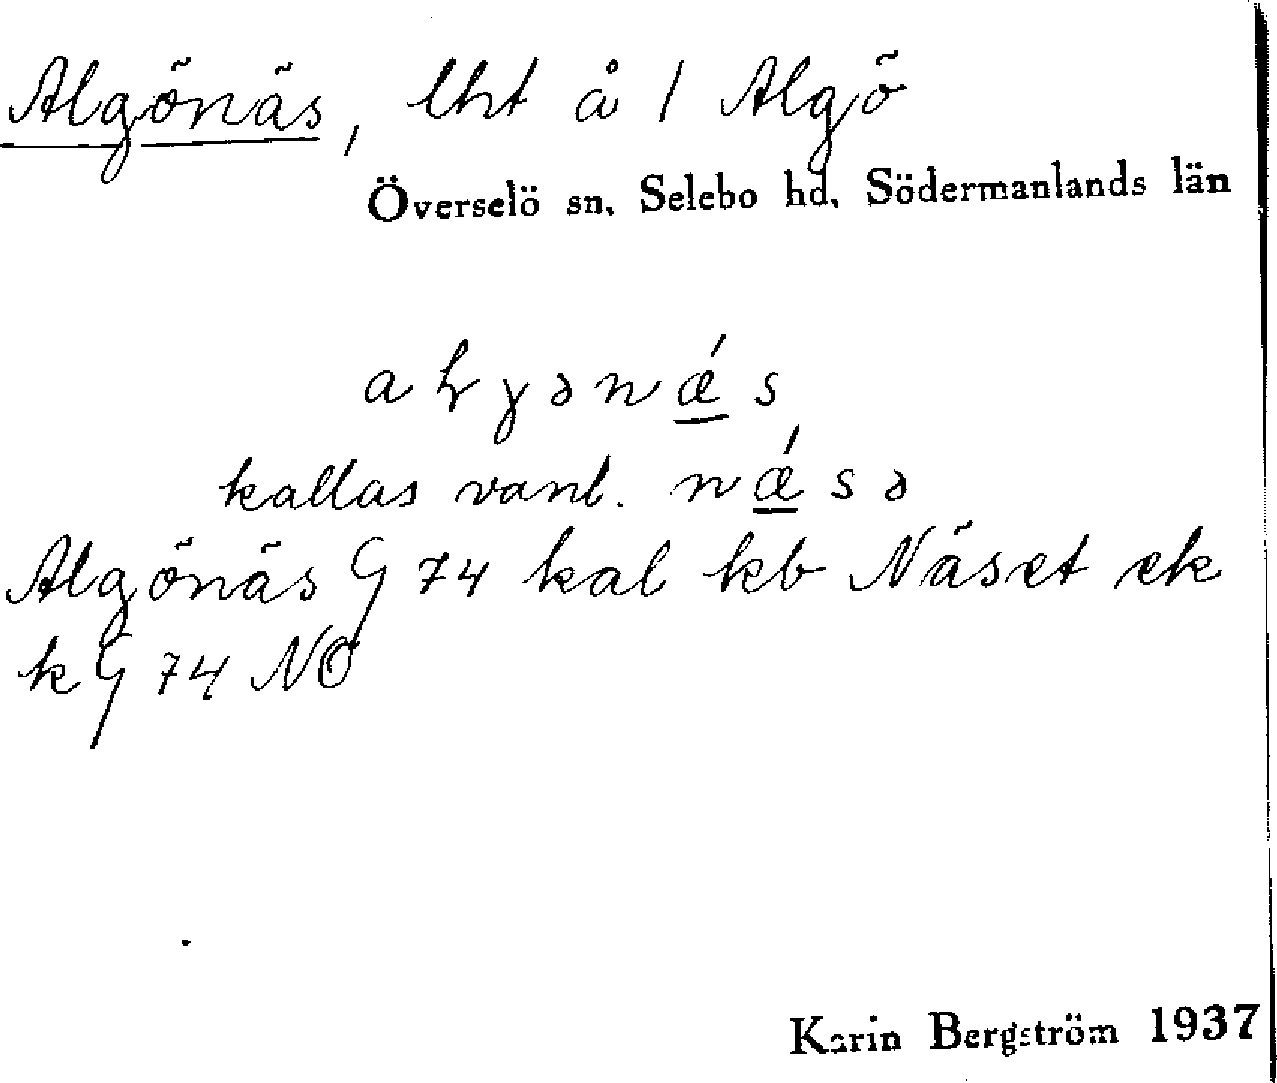 Algönäs, lht å / Algö
Överselö sn, Selebo hd, Södermanlands län
kallas vanl. nǽsə
Algönäs G 74 kal kb Näset ek
k G 74 NO
Karin Bergström 1937